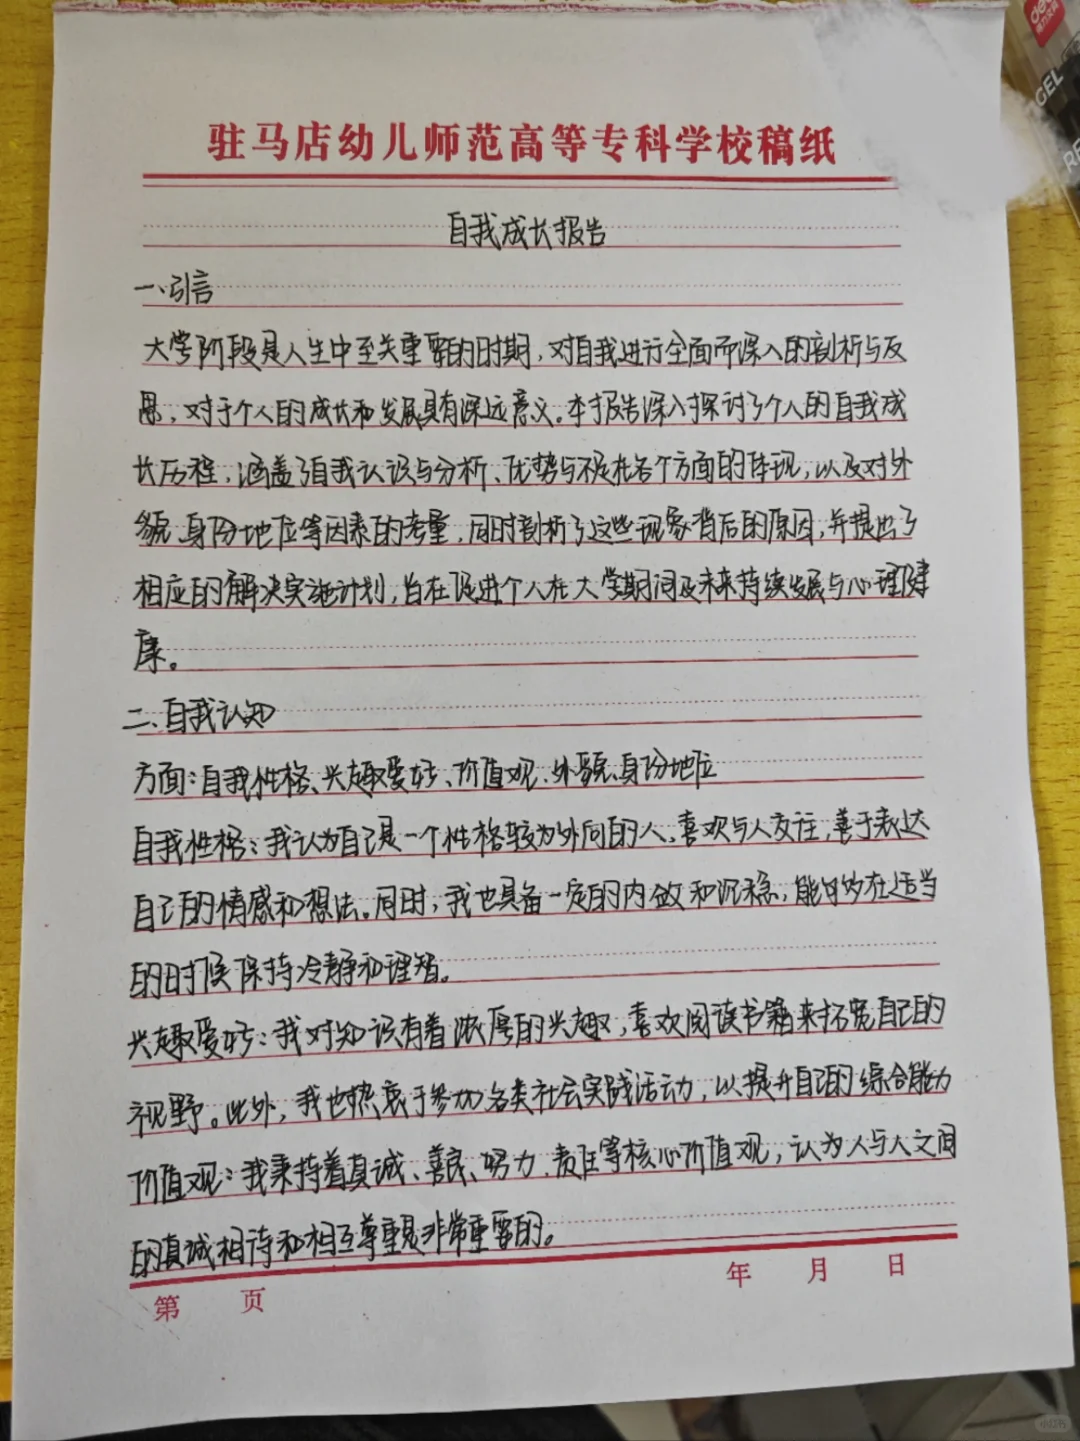 驻马店幼儿师范高等专科学校稿纸
自我成长报告
一、引言
大学阶段是人生中至关重要的时期，对自我进行全面而深入的剖析与反
思，对于个人的成长和发展具有深远意义。本报告深入探讨了个人的自我成
长历程，涵盖了自我认识与分析、优势与不足在各个方面的体现，以及对外
貌、身份地位等因素的考量，同时剖析了这些现象背后的原因，并提出了
相应的解决实施计划，旨在促进个人在大学期间及未来持续发展与心理健
康。
二、自我认知
方面：自我性格、兴趣爱好、价值观、外貌、身份地位
自我性格：我认为自己是一个性格较为外向的人。喜欢与人交往，善于表达
自己的情感和想法。同时，我也具备一定的内敛和沉稳，能够在适当
的时候保持冷静和理智。
兴趣爱好：我对知识有着浓厚的兴趣，喜欢阅读书籍来拓宽自己的
视野。此外，我也热衷于参加各类社会实践活动，以提升自己的综合能力
价值观：我秉持着真诚、善良、努力、责任等核心价值观，认为人与人之间
的真诚相待和相互尊重是非常重要的。
第 页 年 月 日
deli
得力文具
GEL
小红书